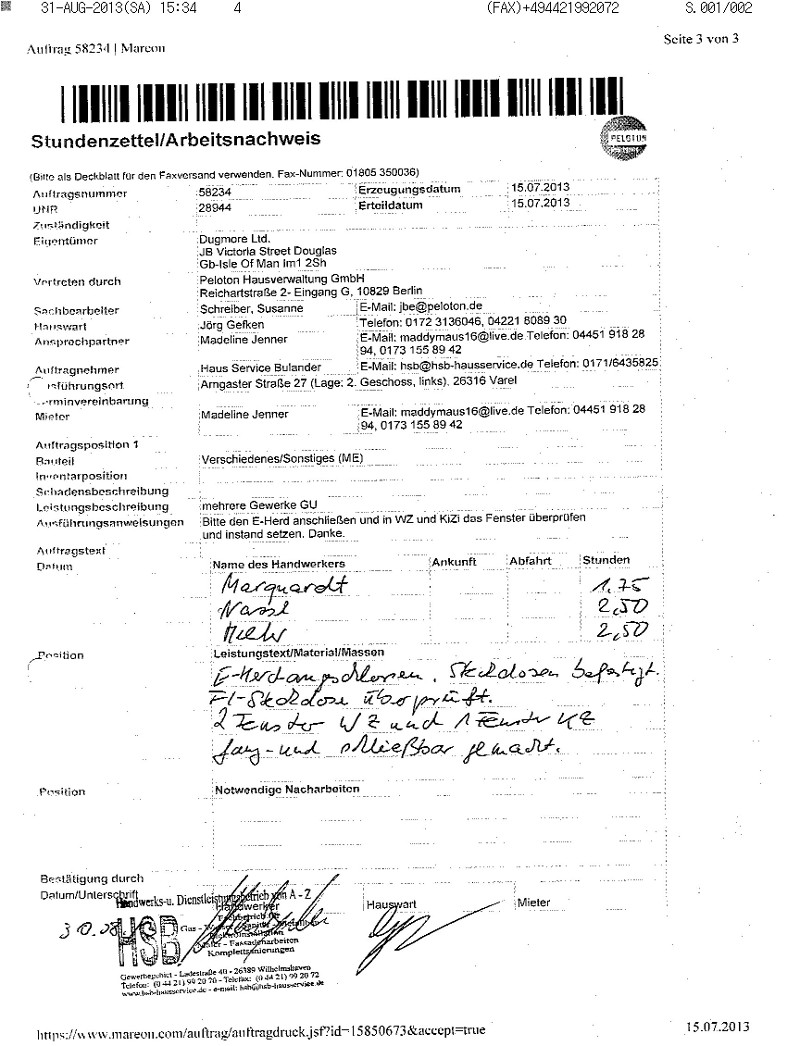 31-AUG-2013(SA) 15:34 4 (FAX)+494421992072 S. 001/002
Auftrag 58234 | Mareon Seite 3 von 3
Stundenzettel/Arbeitsnachweis
PELOTON
(Bitte als Deckblatt für den Faxversand verwenden. Fax-Nummer: 01805 350036)
Auftragsnummer 58234 Erzeugungsdatum 15.07.2013
UNR 28944 Erteildatum 15.07.2013
Zuständigkeit
Eigentümer Dugmore Ltd.
JB Victoria Street Douglas
Gb-Isle Of Man Im1 2Sh
Vertreten durch Peloton Hausverwaltung GmbH
Reichartstraße 2- Eingang G, 10829 Berlin
Sachbearbeiter Schreiber, Susanne E-Mail: jbe@peloton.de
Hauswart Jörg Gefken Telefon: 0172 3136046, 04221 8089 30
Ansprechpartner Madeline Jenner E-Mail: maddymaus16@live.de Telefon: 04451 918 28
94, 0173 155 89 42
Auftragnehmer Haus Service Bulander E-Mail: hsb@hsb-hausservice.de Telefon: 0171/6435825
usführungsort Arngaster Straße 27 (Lage: 2. Geschoss, links), 26316 Varel
erminvereinbarung
Mieter Madeline Jenner E-Mail: maddymaus16@live.de Telefon: 04451 918 28
94, 0173 155 89 42
Auftragsposition 1
Bauteil Verschiedenes/Sonstiges (ME)
Inventarposition
Schadensbeschreibung
Leistungsbeschreibung mehrere Gewerke GU
Ausführungsanweisungen Bitte den E-Herd anschließen und in WZ und KiZi das Fenster überprüfen
und instand setzen. Danke.
Auftragstext
Datum Name des Handwerkers Ankunft Abfahrt Stunden
Marquardt 1,75
Nassl 2,50
2,50
Position Leistungstext/Material/Massen
E-Herd angeschlossen, Steckdosen befestigt.
FI-Steckdose überprüft.
2 Fenster WZ und 1 Fenster KZ
gang- und schließbar gemacht.
Position Notwendige Nacharbeiten
Bestätigung durch
Datum/Unterschrift Handwerks-u. Dienstleistungsbetrieb von A - Z
Handwerker Hauswart Mieter
30.08
HSB
Fachbetrieb für
Gas -
Maler - Fassadenarbeiten
Komplettsanierungen
Gewerbegebiet - Ladestraße 40 - 26389 Wilhelmshaven
Telefon: (0 44 21) 99 20 70 - Telefax: (0 44 21) 99 20 72
www.hsb-hausservice.de - e-mail: hsb@hsb-hausservice.de
https://www.mareon.com/auftrag/auftragdruck.jsf?id=15850673&accept=true 15.07.2013